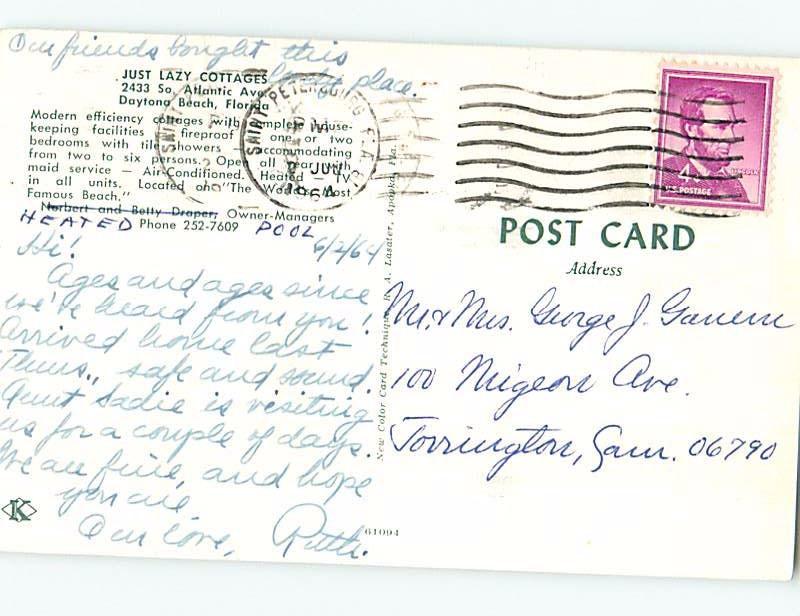 Our friends bought this
lovely place.
JUST LAZY COTTAGES
2433 So. Atlantic Ave.
Daytona Beach, Florida
Modern efficiency cottages with complete house-
keeping facilities — fireproof — one or two
bedrooms with tile showers — accommodating
from two to six persons. Open all year with
maid service — Air-Conditioned. Heated — TV
in all units. Located on "The World's Most
Famous Beach."
Norbert and Betty Draper, Owner-Managers
HEATED Phone 252-7609 POOL
6/2/64
Hi!
Ages and ages since
we've heard from you!
Arrived home last
Thurs., safe and sound.
Aunt Sadie is visiting
us for a couple of days.
We are fine, and hope
you are
Our love, Ruth.
K
61094
New Color Card Technique R. A. Lasater, Apopka, Fla.
SAINT PETERSBURG FLA
JUN
1964
4¢
LINCOLN
U.S. POSTAGE
POST CARD
Address
Mr. & Mrs. George J.
100 Migeon Ave.
Torrington, Conn. 06790